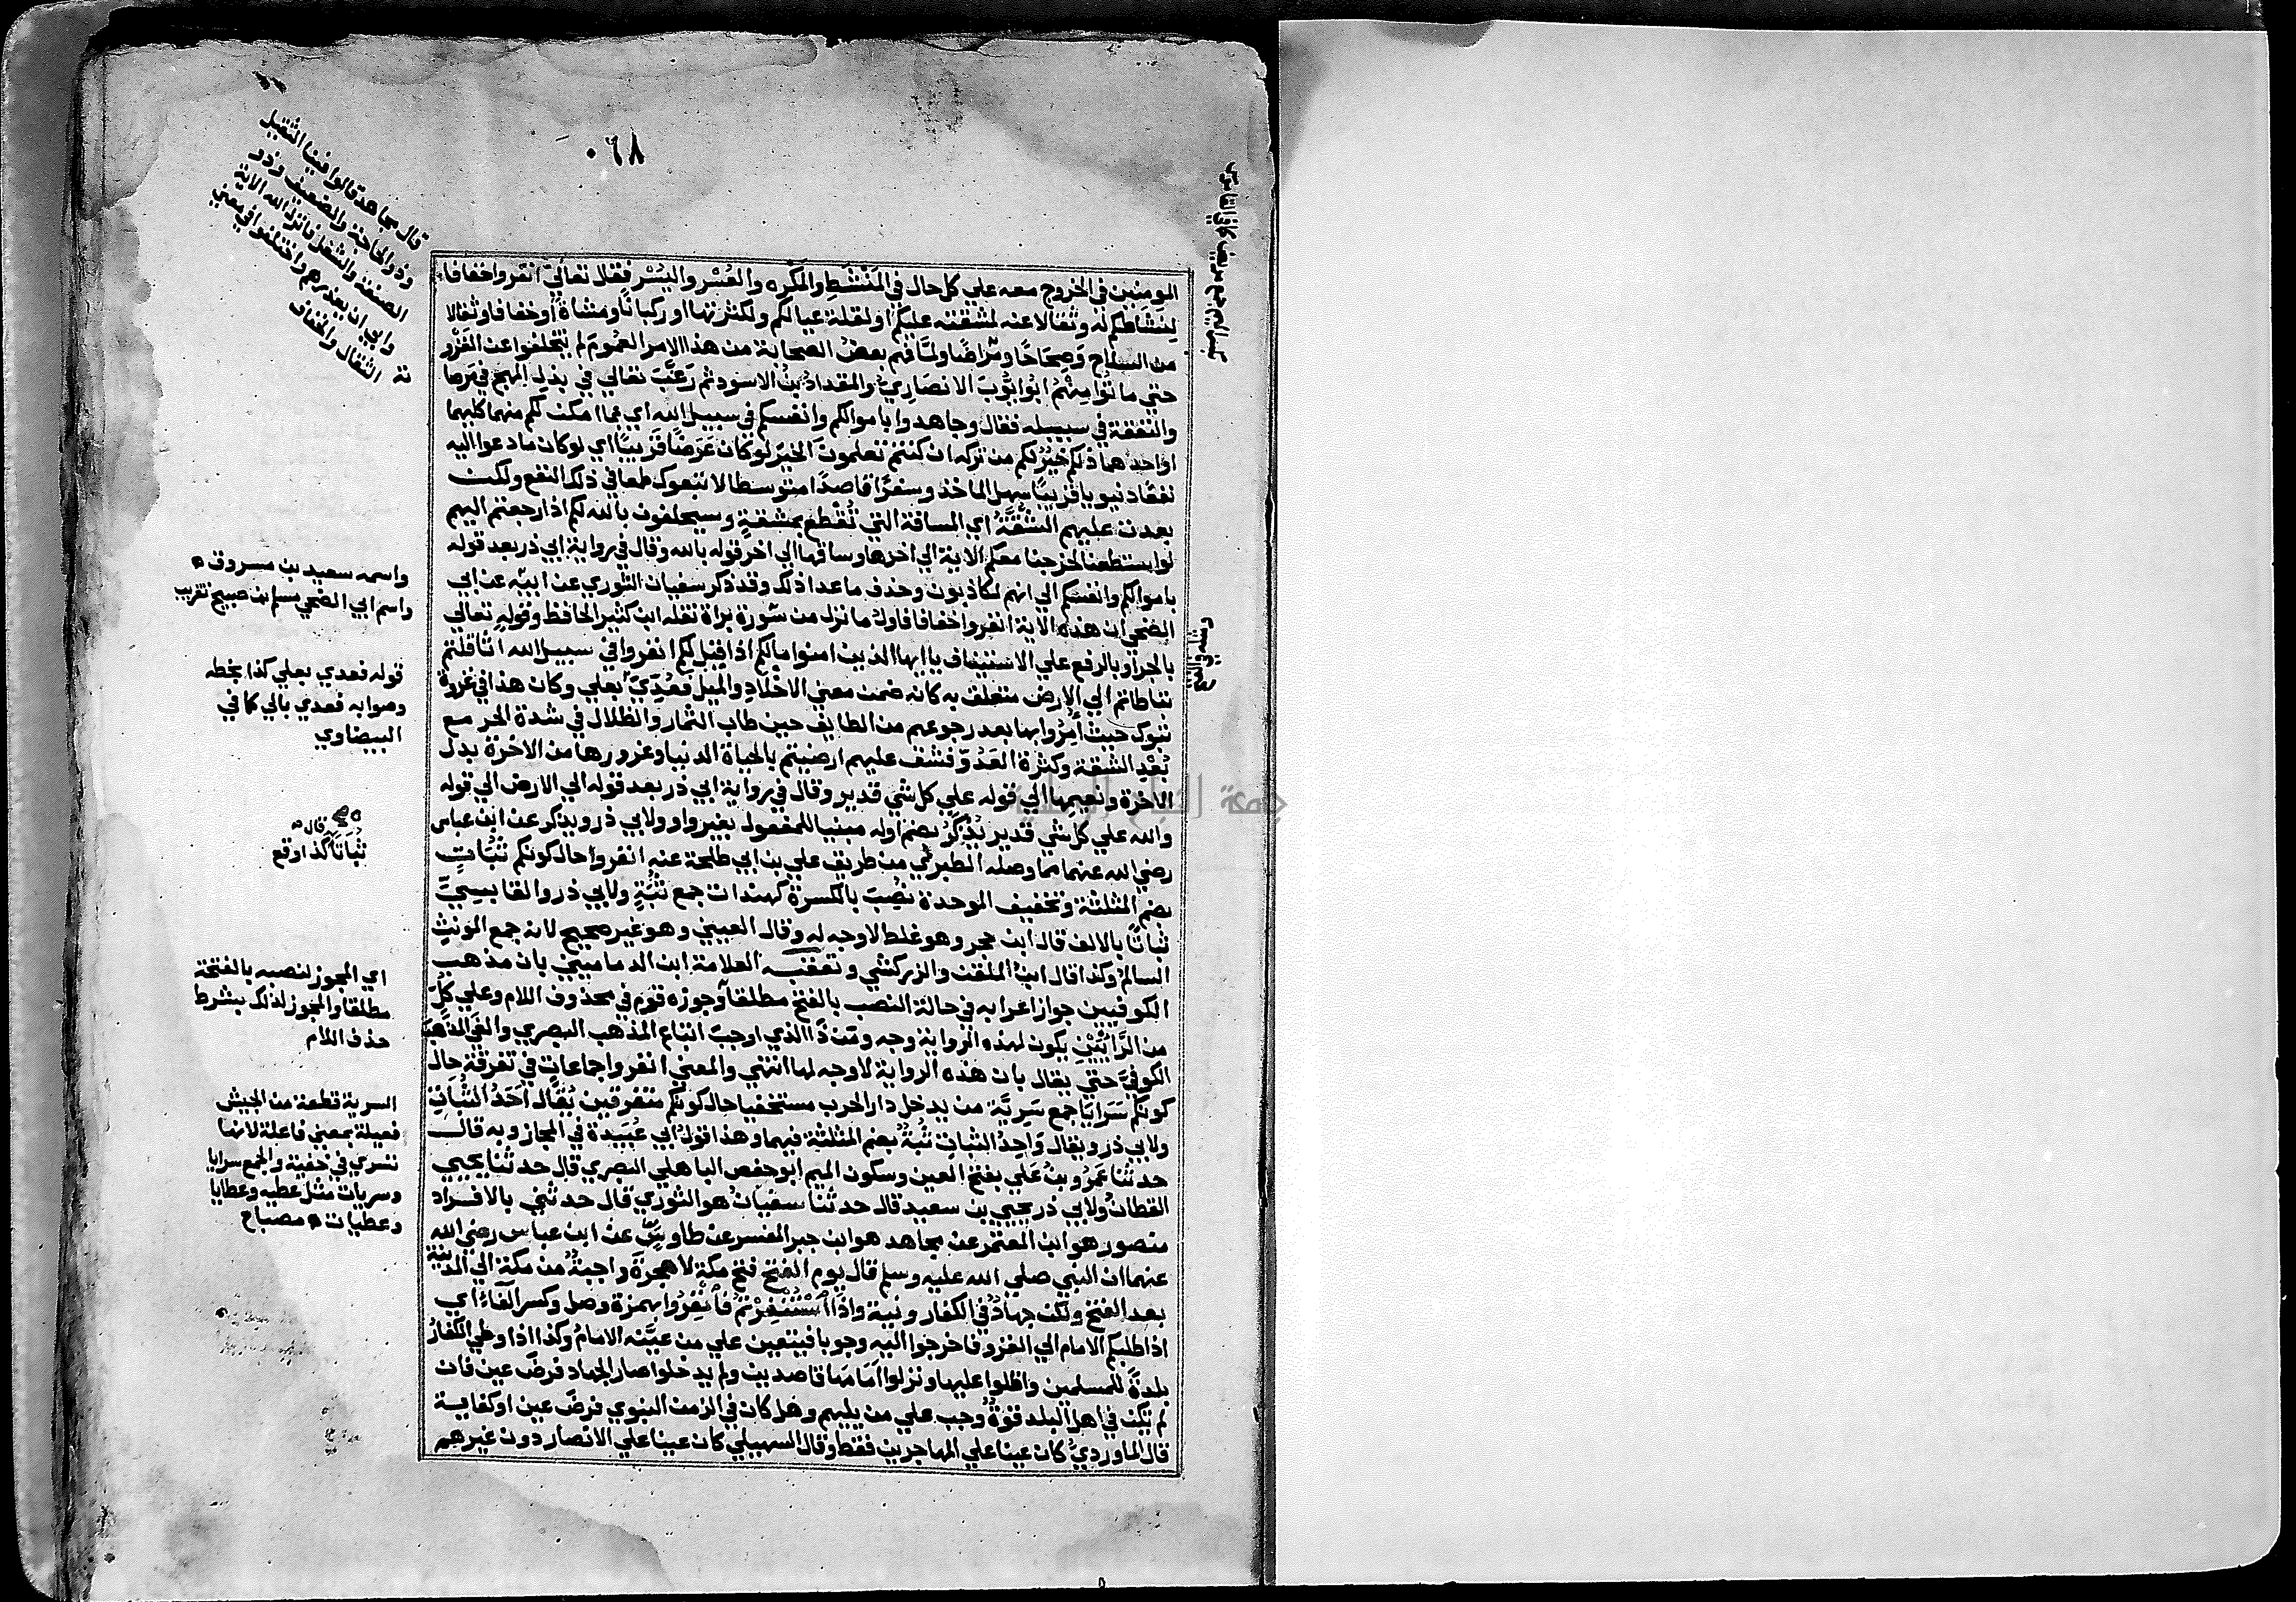 ٠٦٨
المومنين في الخروج معه علي كل حال في المَنْشَطِ والمَكْره والعُسْر واليُسْر فقال تعالي انفروا خفافا
لِنشاطكم له وثقالا عنه لمشقته عليكم او لقلة عيالكم ولكثرتها او ركبانا ومشاة أو خفافا وثقالا
من السلاح وَصِحَاحًا ومِرَاضًا ولما فهم بعض الصحابة من هذا الامر العموم لم يتخلفوا عن الغزو
حتي ماتوا مِنْهُم ابو ايوب الانصاري والمقداد بن الاسود ثم رَغَّبَ تعالي في بذل المهج في مرضا
والنفقة في سبيله فقال وجاهدوا باموالكم وانفسكم في سبيل الله اي بما امكن لكم منهما كليهما
او احدهما ذلكم خير لكم من تركه ان كنتم تعلمون الخير لو كان عَرَضًا قَريبًا اي لو كان ما دعوا اليه
نفعًا دنيويا قريبًا سهل الماخذ وسفرًا قاصدًا متوسطا لاتبعوك طمعا في ذلك النفع ولكن
بعدت عليهم الشُّقَّة اي المسافة التي تُقْطع بمشقةٍ وسيحلفون بالله لكم اذا رجعتم اليهم
لو استطعنا لخرجنا معكم الاية الي اخرها وساقها الي اخر قوله بالله وقال في رواية ابي ذر بعد قوله
باموالكم وانفسكم الي انهم لكاذبون وحذف ما عدا ذلك وقد ذكر سفيان الثوري عن ابيه عن ابي
الضحي ان هذه الاية انفروا خفافا اول ما نزل من سورة براة نقله ابن كثير الحافظ وقوله تعالي
بالجر او بالرفع علي الاستيناف يا ايها الذين امنوا ما لكم اذا قيل لكم انفروا في سبيل الله اثاقلتم
تباطاتم الي الارض متعلق به كانه ضمن معني الاخلاد والميل فَعُدِّيَ بعلي وكان هذا في غزوة
تبوك حيث أُمِرُوا بها بعد رجوعهم من الطايف حين طاب الثمار والظلال في شدة الحر مع
بُعْدِ الشقة وكثرة العَدُوّ فشق عليهم ارضيتم بالحياة الدنيا وغرورها من الاخرة بدل
الاخرة ونعيمها الي قوله علي كل شي قدير وقال في رواية ابي ذر بعد قوله الي الارض الي قوله
والله علي كل شي قدير يُذكَرُ بضم اوله مبنيا للمفعول بغير واو ولابي ذر ويذكر عن ابن عباس
رضي الله عنهما مما وصله الطبري من طريق علي بن ابي طلحة عنه انفروا حال كونكم ثُبَاتٍ
بضم المثلثة وتخفيف الموحدة نُصِبَ بالكسرة كهندات جمع ثُبَةٍ ولابي ذر والقابسِيّ
ثباتًا بالالف قال ابن حجر وهو غلط لا وجه له وقال العيني وهو غير صحيح لانه جمع المونث
السالم وكذا قال ابن الملقن والزركشي وتعقبه العلامة ابن الدماميني بان مذهب
الكوفيين جواز اعرابه في حالة النصب بالفتح مطلقا وجوزه قوم في محذوف اللام وعلي كُلٍّ
من الرَّايَيْنِ يكون لهذه الرواية وجه ومَن ذَا الذي اوجب اتباع المذهب البصري والغي المذهب
الكوفيّ حتي يقال بان هذه الرواية لا وجه لها انتهي والمعني انفروا جماعاتٍ في تفرقة حال
كونكم سَرَايَا جمع سَرِيَّة من يدخل دار الحرب مستخفيا حال كونكم متفرقين يُقَال أحَدُ الثباتِ
ولابي ذر ويقال وَاحِدُ الثباتِ ثُبَةٌ بضم المثلثة فيهما وهذا قول ابي عُبَيدة في المجاز وبه قال
حدثنا عَمْرُو بنُ عَلي بفتح العين وسكون الميم ابو حفص الباهلي البصري قال حدثنا يحيي
القطان ولابي ذر يحيي بن سعيد قال حدثنا سفيان هو الثوري قال حدثني بالافراد
منصور هو ابن المعتمر عن مجاهد هو ابن جبر المفسر عن طاوس عن ابن عباس رضي الله
عنهما ان النبي صلي الله عليه وسلم قال يوم الفتح فتح مكة لا هجرةَ واجبةٌ من مكة الي المدينة
بعد الفتح ولكن جهادٌ في الكفار ونية واذا اسْتُنْفِرْتُمْ فَانْفِرُوا بهمزة وصل وكسر الفاء اي
اذا طلبكم الامام الي الغزو فاخرجوا اليه وجوبا فيتعين علي من عيَّنه الامام وكذا اذا وطي الكفار
بلدةً للمسلمين واظلوا عليها ونزلوا أمَامَها قاصدين ولم يدخلوا صار الجهاد فرض عين فان
لم يكن في اهل البلد قوةٌ وجب علي من يليهم وهل كان في الزمن النبوي فرض عين او كفاية
قال الماوردي كان عينا علي المهاجرين فقط وقال السهيلي كان عينا علي الانصار دون غيرهم
قال مجاهد قالوا فينا الثقيل
وذو الحاجة والضعيف وذو
الصنعة والشغل فانزل الله الاية
وابي ان يعذرهم واختلفوا في معني
الثقال والخفاف
واسمه سعيد بن مسروق
واسم ابي الضحي مسلم بن صبيح تقريب
قوله فعدي بعلي كذا بخطه
وصوابه فعدي بالي كما في
البيضاوي
قال
ثُبَاتًا كذا وقع
اي المجوز لنصبه بالفتحة
مطلقا والمجوز لذلك بشرط
حذف اللام
السرية قطعة من الجيش
فعيلة بمعني فاعلة لانها
تسري في خفية والجمع سرايا
وسريات مثل عطيه وعطايا
وعطيات مصباح